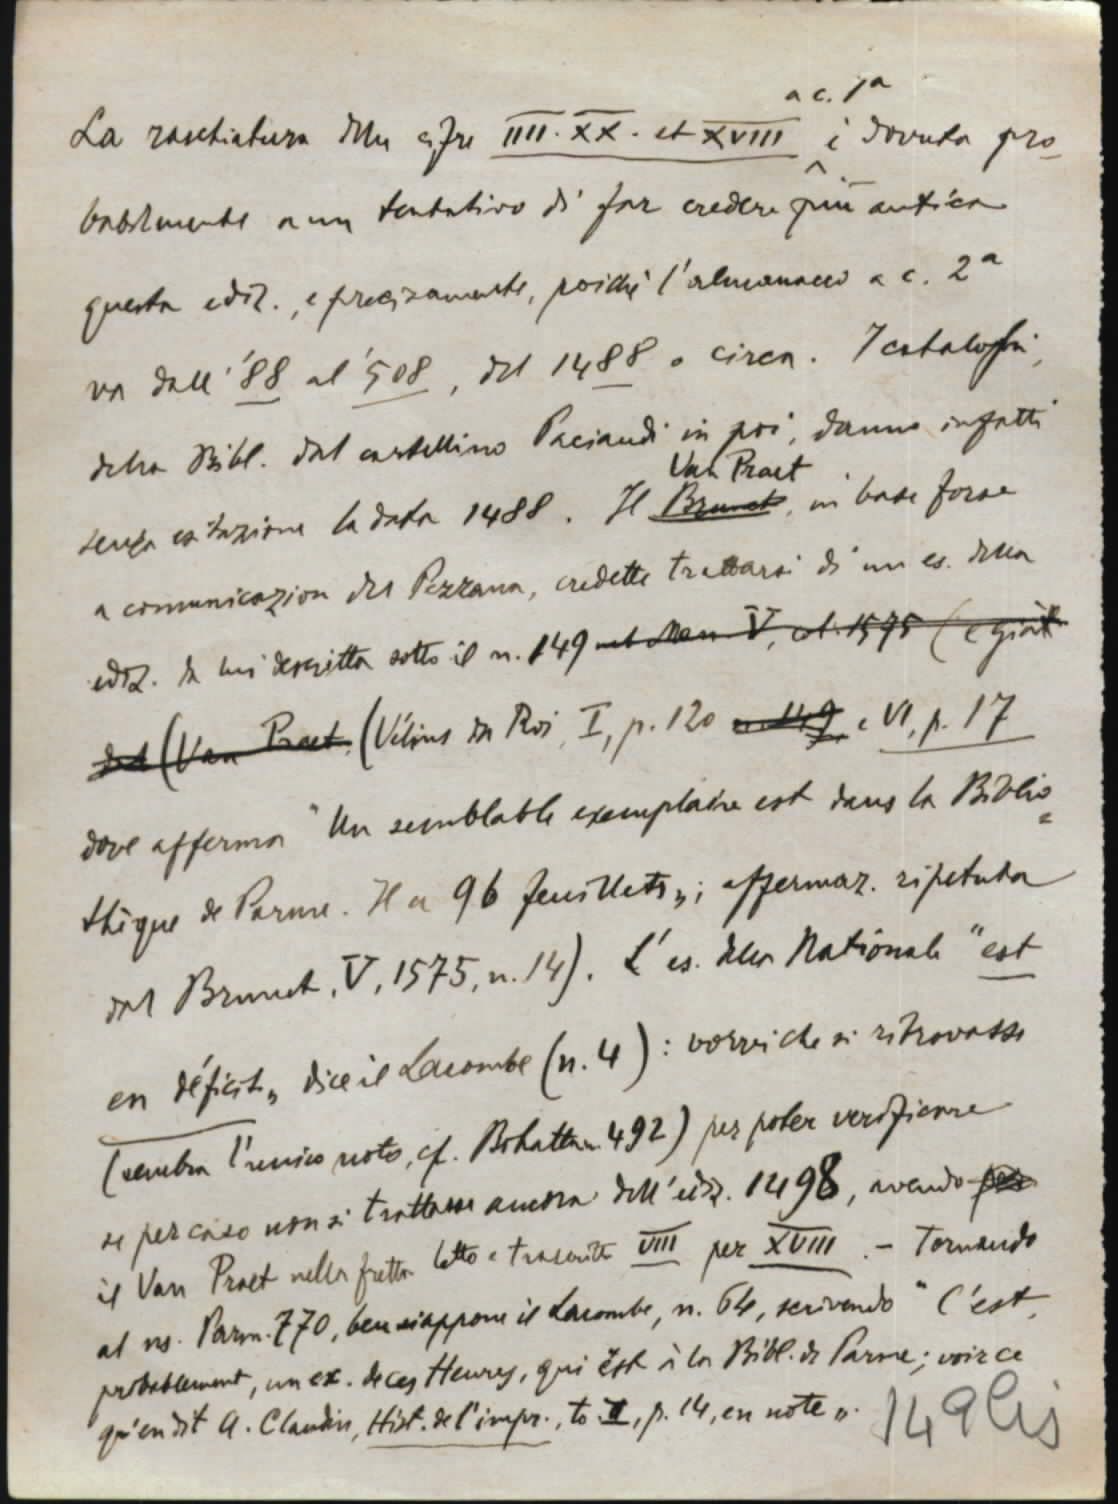 a c. 1ª
La raschiatura delle cifre IIII. XX. et XVIII è dovuta pro-
babilmente a un tentativo di far credere più antica
questa ediz., e precisamente, poiché l'almanacco a c. 2ª
va dall' '88 al '508, del 1488 o circa. I cataloghi,
della Bibl. dal cartellino Paciaudi in poi, danno infatti
Van Praet
senza esitazione la data 1488. Il Brunet, in base forse
a comunicazion del Pezzana, credette trattarsi di un es. della
ediz. da lui descritta sotto il n. 149 nel Man V, col. 1575 (e già
dal (Van Praet, (Vélins du Roi, I, p. 120 n. 149 e VI, p. 17
dove afferma "Un semblable exemplaire est dans la Biblio=
thèque de Parme. Il a 96 feuillets„; affermaz. ripetuta
dal Brunet, V, 1575, n. 14). L'es. della Nationale "est
en déficit„ dice il Lacombe (n. 4): vorrei che si ritrovasse
(sembra l'unico noto, cf. Bohatta n. 492) per poter verificare
se per caso non si trattasse ancora dell'ediz. 1498, avendo per
il Van Praet nella fretta letto e trascritto VIII per XVIII. - Tornando
al ns. Parm. 770, ben si appone il Lacombe, n. 64, scrivendo "C'est,
probablement, un ex. de ces Heures, qui est à la Bibl. de Parme; voir ce
qu'en dit A. Claudin, Hist. de l'impr., to. II, p. 14, en note„.
149 bis